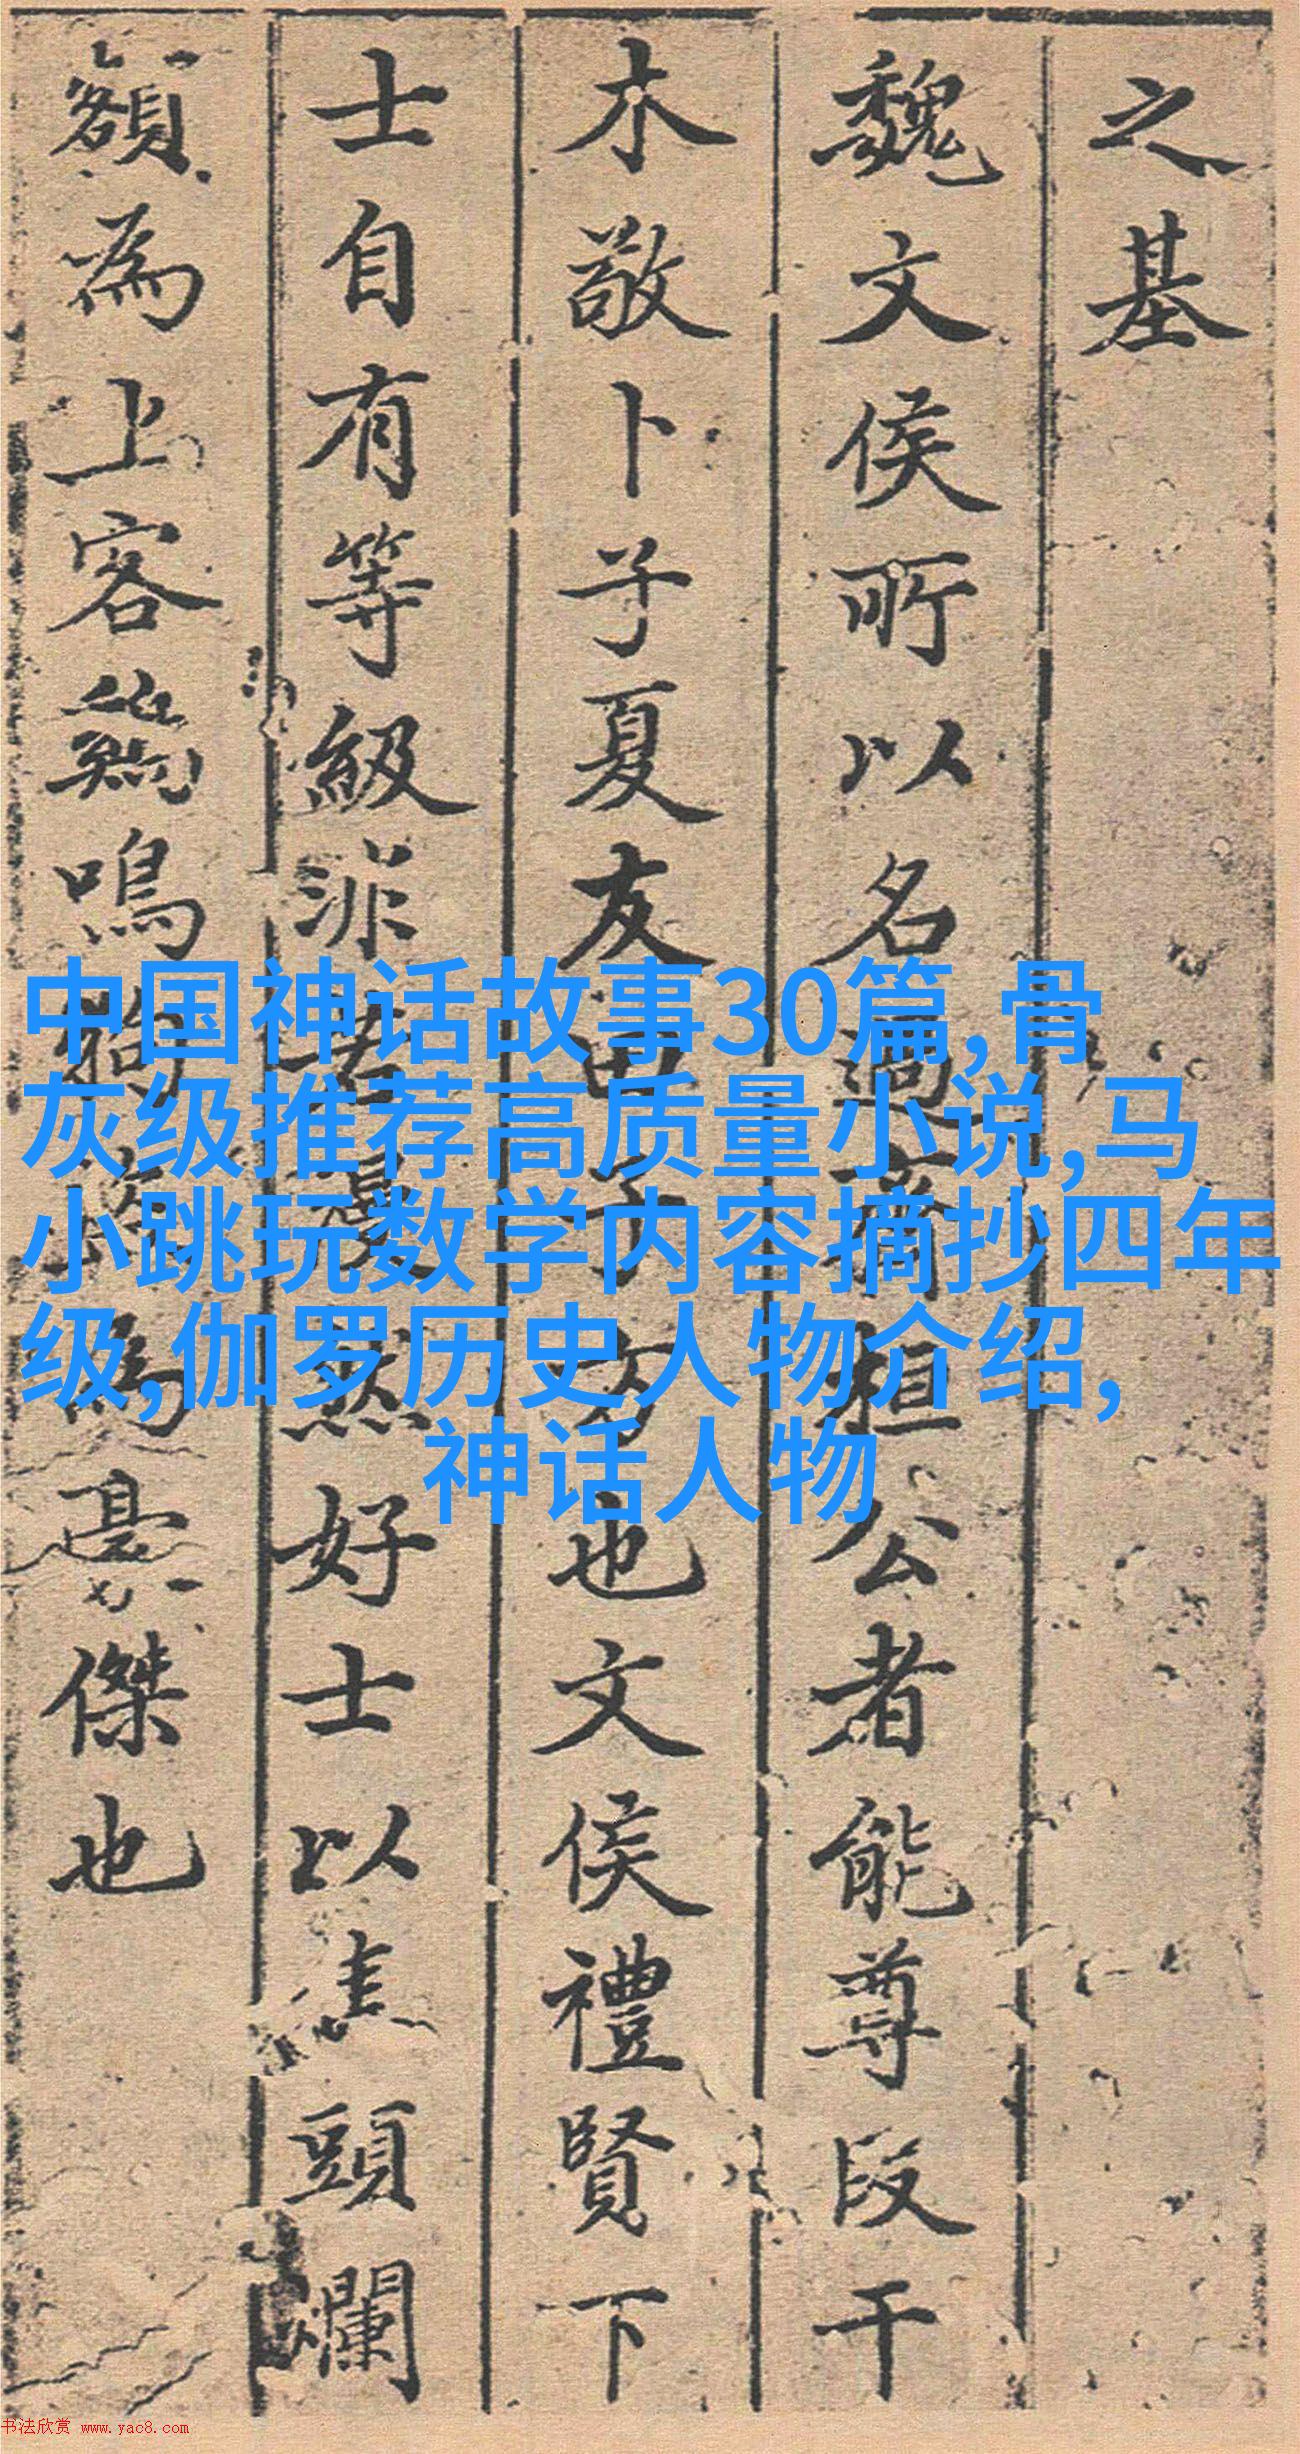 之基
魏文侯所以名過齊桓公者能尊段干
木敬卜子夏友田子方也文侯禮賢下
士自有等級非若漫然好士以焦頭爛
額為上客雞鳴狗盜為豪傑也
中国神话故事30篇,骨
灰级推荐高质量小说,马
小跳玩数学内容摘抄四年
级,伽罗历史人物介绍,
神话人物
书法欣赏 www.yac8.com